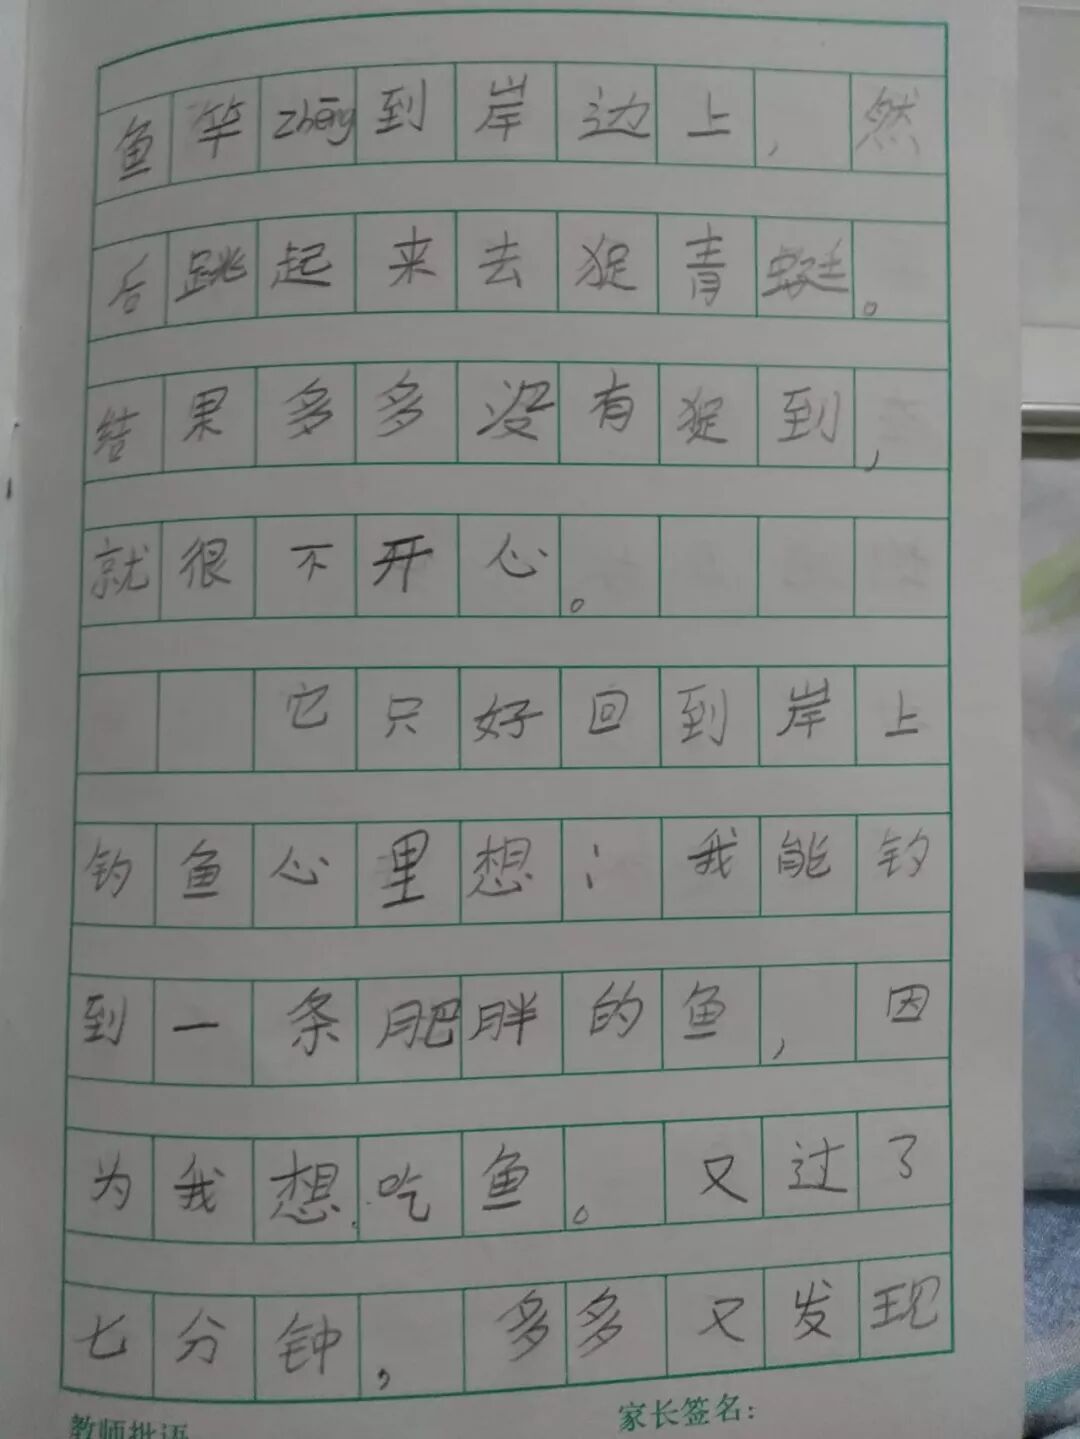 鱼竿zhēng到岸边上，然
后跳起来去捉青蜓。
结果多多没有捉到，
就很不开心。
它只好回到岸上
钓鱼心里想：我能钓
到一条肥胖的鱼，因
为我想吃鱼。又过了
七分钟，多多又发现
教师批语
家长签名：